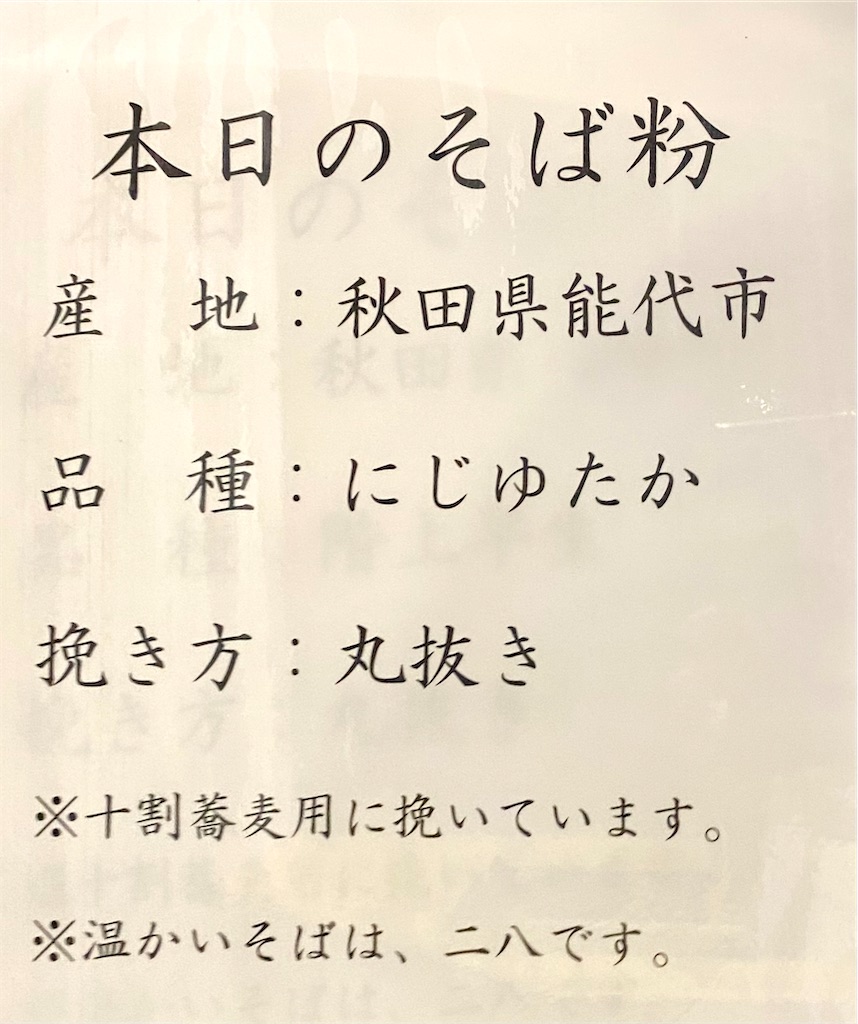 本日のそば粉
産　地：秋田県能代市
品　種：にじゆたか
挽き方：丸抜き
※十割蕎麦用に挽いています。
※温かいそばは、二八です。